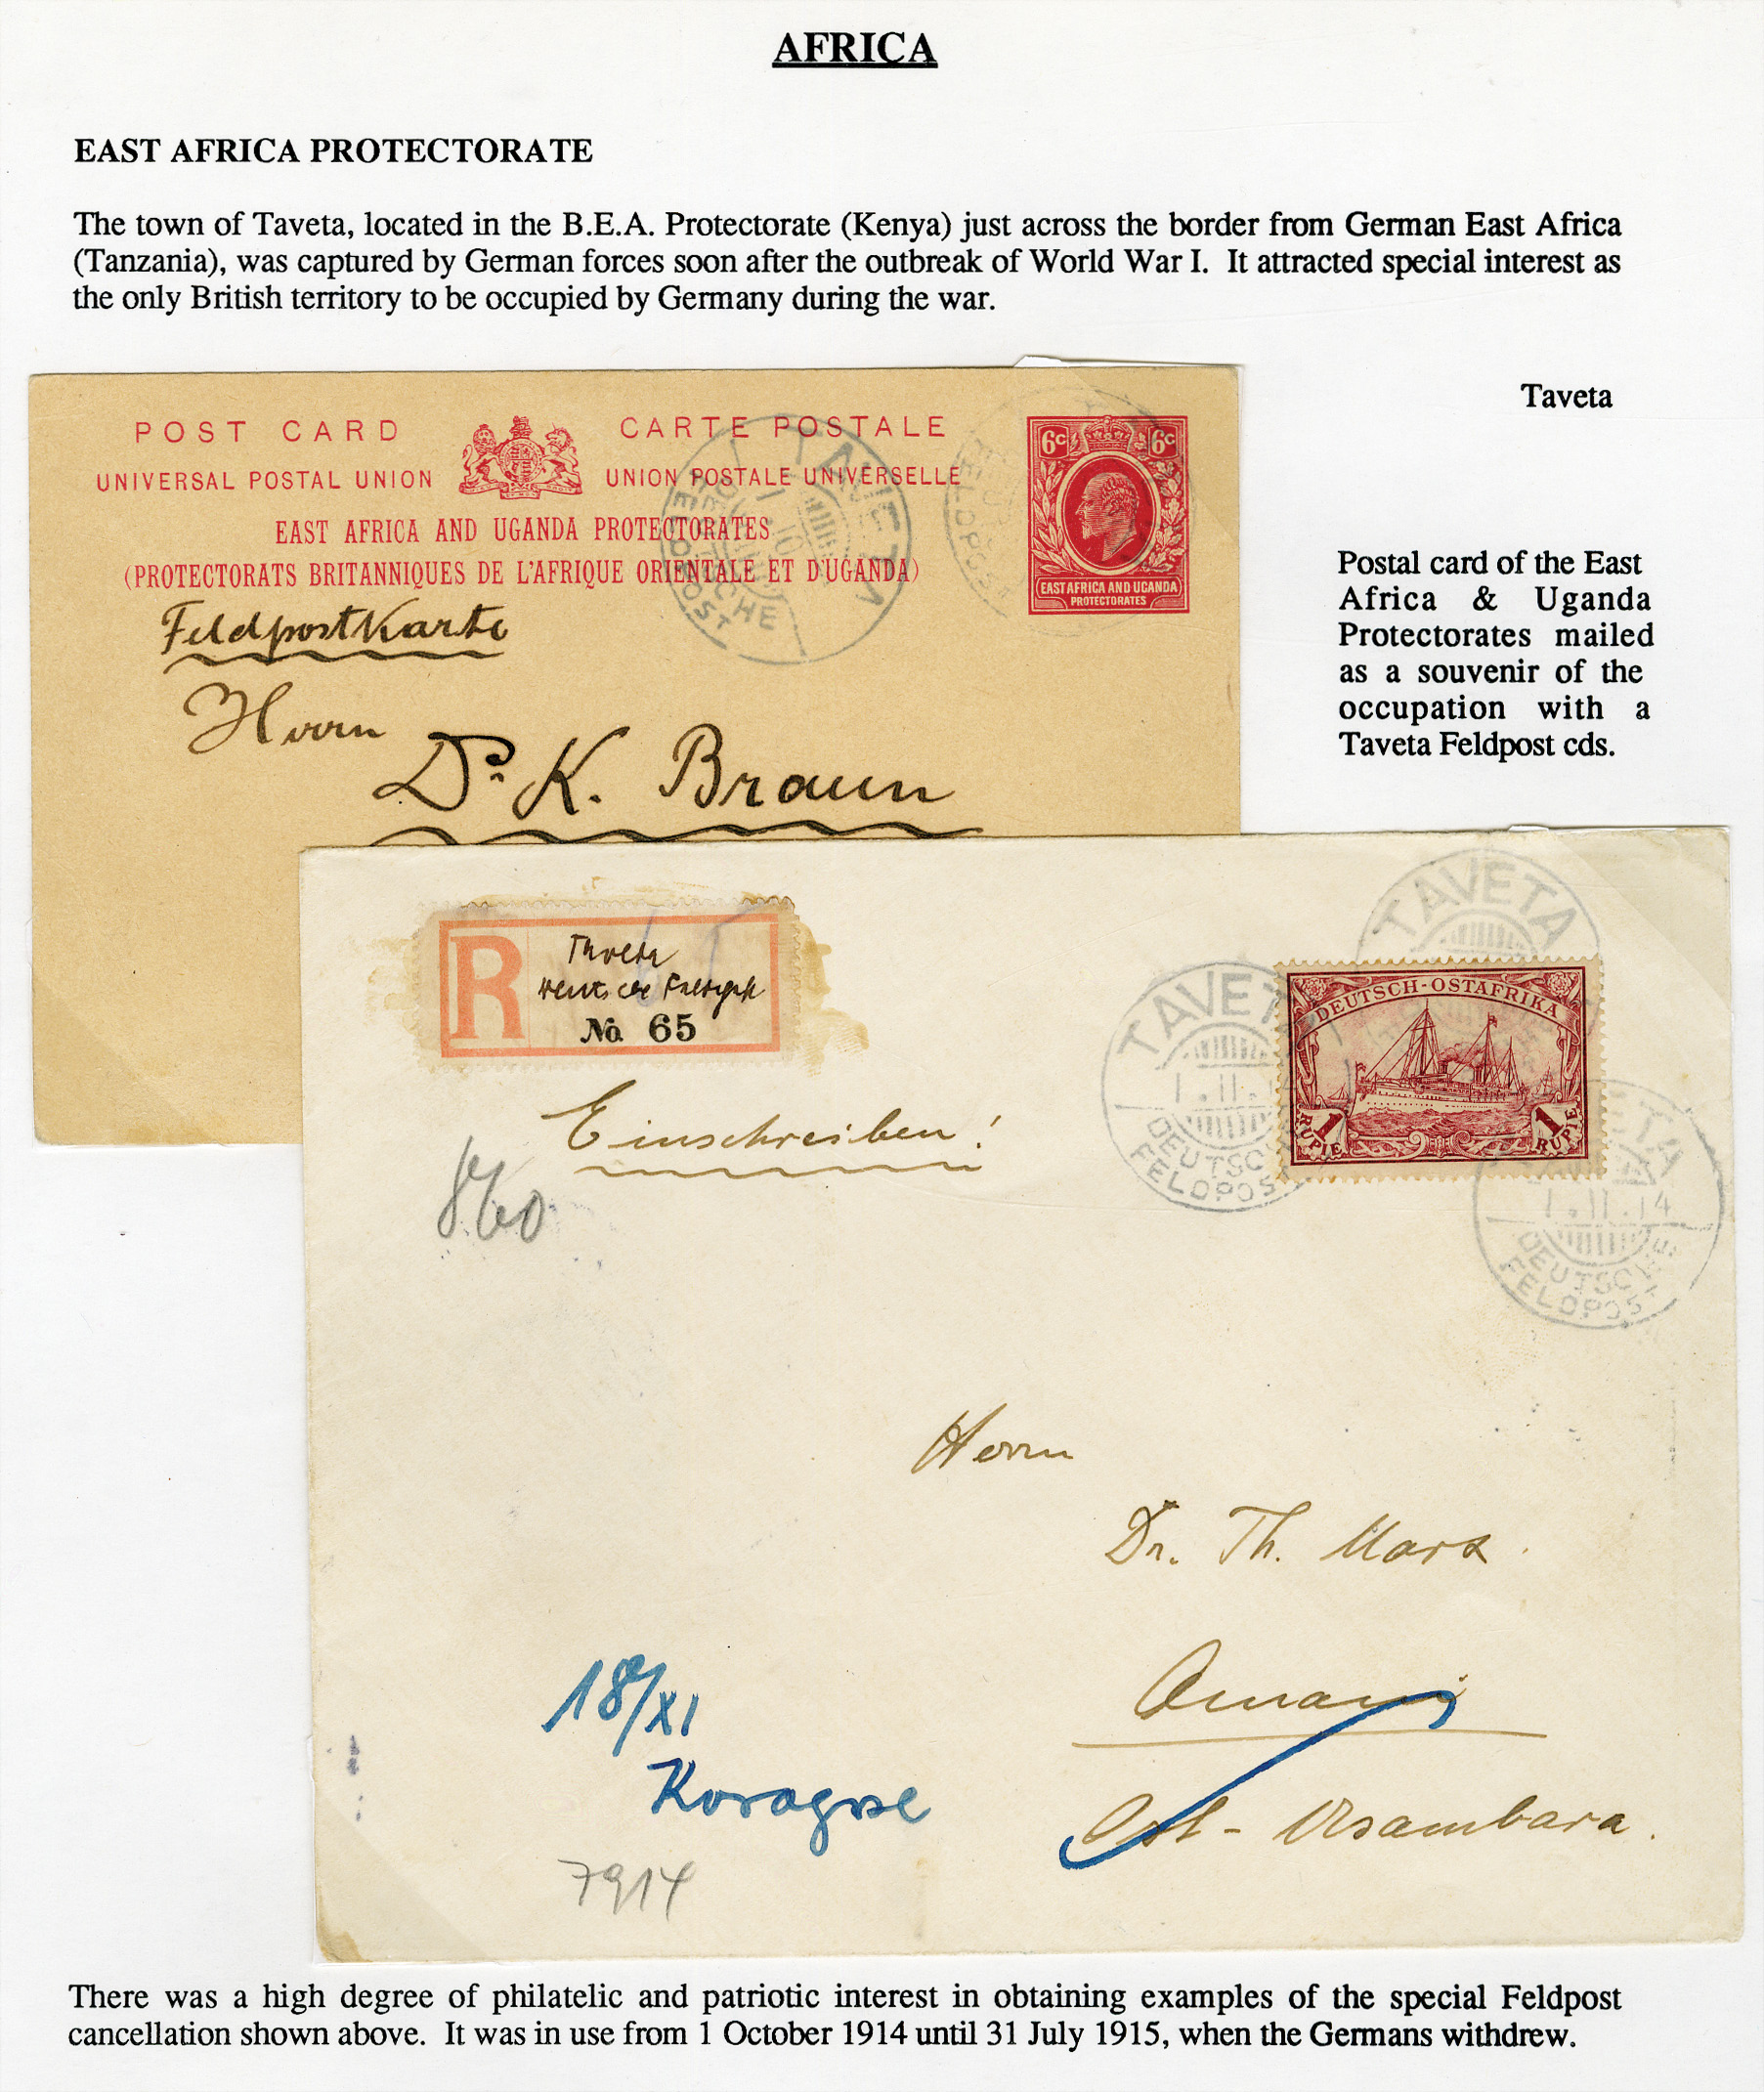 AFRICA
EAST AFRICA PROTECTORATE
The town of Taveta, located in the B.E.A. Protectorate (Kenya) just across the border from German East Africa
(Tanzania), was captured by German forces soon after the outbreak of World War I. It attracted special interest as
the only British territory to be occupied by Germany during the war.
Taveta
POST CARD CARTE POSTALE
UNIVERSAL POSTAL UNION UNION POSTALE UNIVERSELLE
EAST AFRICA AND UGANDA PROTECTORATES
(PROTECTORATS BRITANNIQUES DE L'AFRIQUE ORIENTALE ET D'UGANDA)
6c 6c
EAST AFRICA AND UGANDA
PROTECTORATES
TAVETA
DEUTSCHE
FELDPOST
FELDPOST
Feldpostkarte
Herrn
Dr. K. Braun
Postal card of the East
Africa & Uganda
Protectorates mailed
as a souvenir of the
occupation with a
Taveta Feldpost cds.
R
Taveta
No. 65
Einschreiben!
TAVETA
TAVETA
1.11.
DEUTSCHE
FELDPOST
DEUTSCH-OSTAFRIKA
1 RUPIE 1 RUPIE
1.11.14
DEUTSCHE
FELDPOST
Herrn
Dr. Th. Marx
Amani
Ost-Usambara.
18/XI
Korogwe
7914
There was a high degree of philatelic and patriotic interest in obtaining examples of the special Feldpost
cancellation shown above. It was in use from 1 October 1914 until 31 July 1915, when the Germans withdrew.